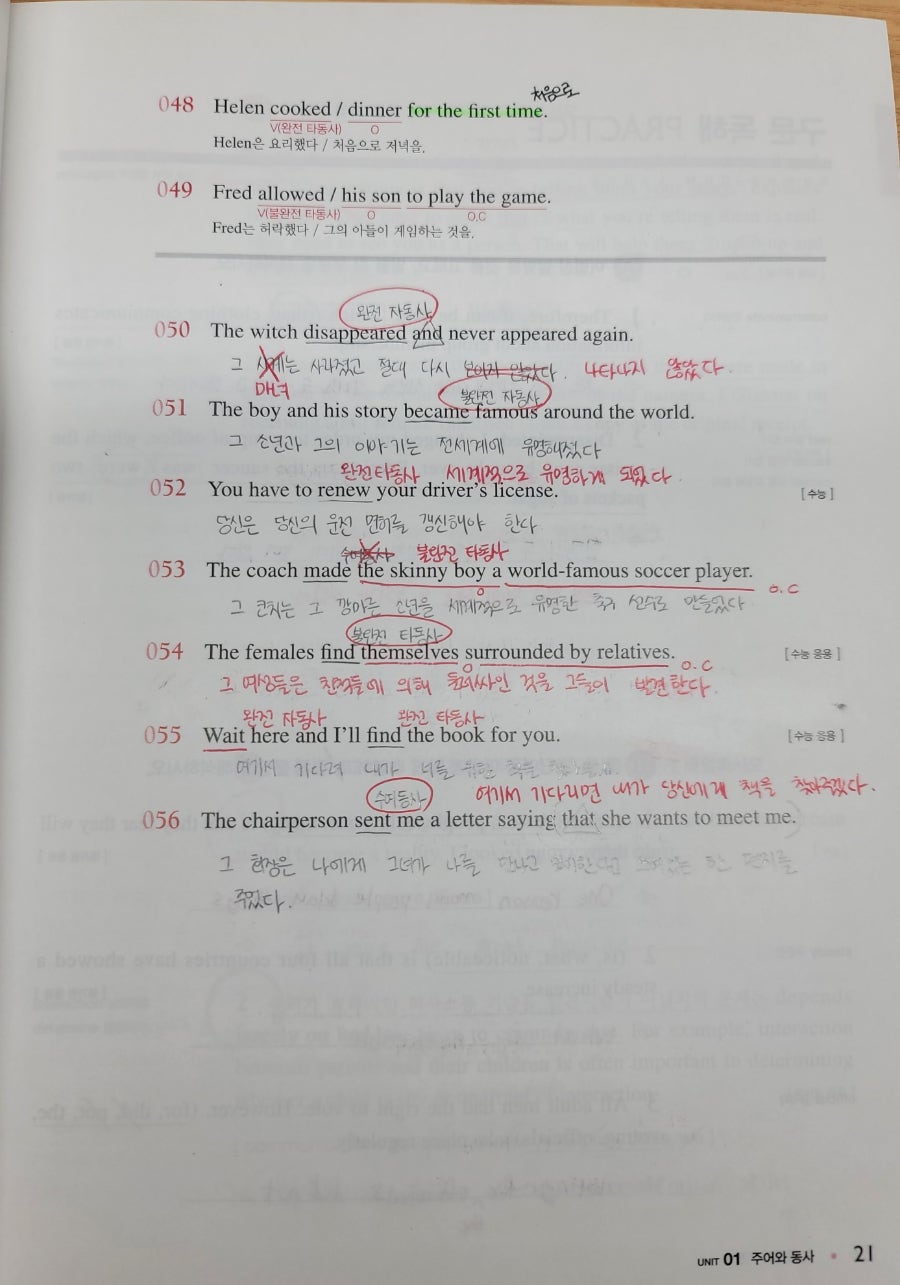 처음으로
048 Helen cooked / dinner for the first time.
V(완전 타동사) O
Helen은 요리했다 / 처음으로 저녁을.
049 Fred allowed / his son to play the game.
V(불완전 타동사) O O.C
Fred는 허락했다 / 그의 아들이 게임하는 것을.
완전 자동사
050 The witch disappeared and never appeared again.
그 는 사라졌고 절대 다시 보이지 않았다. 나타나지 않았다.
마녀
불완전 자동사
051 The boy and his story became famous around the world.
그 소년과 그의 이야기는 전세계에 유명해졌다
완전타동사 세계적으로 유명하게 되었다.
052 You have to renew your driver's license. [수능]
당신은 당신의 운전 면허를 갱신해야 한다
수여동사 불완전 타동사
053 The coach made the skinny boy a world-famous soccer player.
O O.C
그 코치는 그 깡마른 소년을 세계적으로 유명한 축구 선수로 만들었다
불완전 타동사
054 The females find themselves surrounded by relatives. [수능 응용]
O O.C
그 여성들은 친척들에 의해 둘러싸인 것을 그들이 발견한다.
완전 자동사 완전 타동사
055 Wait here and I'll find the book for you. [수능 응용]
여기서 기다려 내가 너를 위한 책을
수여동사 여기서 기다리면 내가 당신에게 책을 찾아주겠다.
056 The chairperson sent me a letter saying that she wants to meet me.
그 회장은 나에게 그녀가 나를 만나고 한 편지를
주었다.
UNIT 01 주어와 동사 • 21